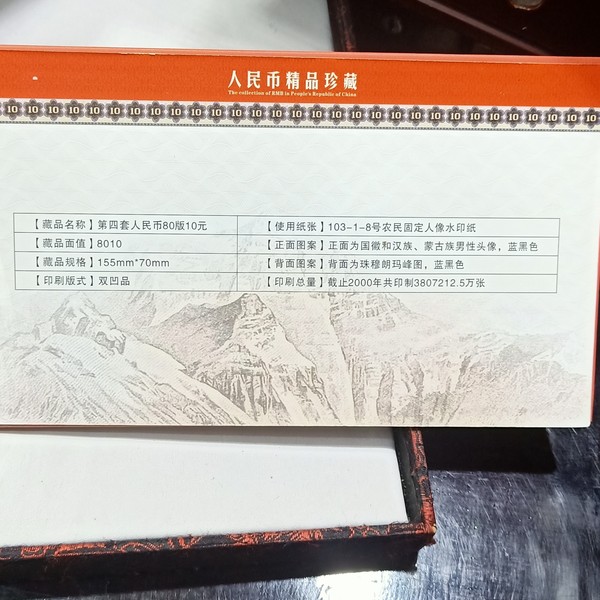 人民币精品珍藏
The collection of RMB in People's Republic of China
10 10 10 10 10 10 10 10 10 10 10 10 10 10 10 10 10 10 10 10 10 10 10 10
【藏品名称】第四套人民币80版10元 【使用纸张】103-1-8号农民固定人像水印纸
【藏品面值】8010 【正面图案】正面为国徽和汉族、蒙古族男性头像，蓝黑色
【藏品规格】155mm*70mm 【背面图案】背面为珠穆朗玛峰图，蓝黑色
【印刷版式】双凹品 【印刷总量】截止2000年共印制3807212.5万张